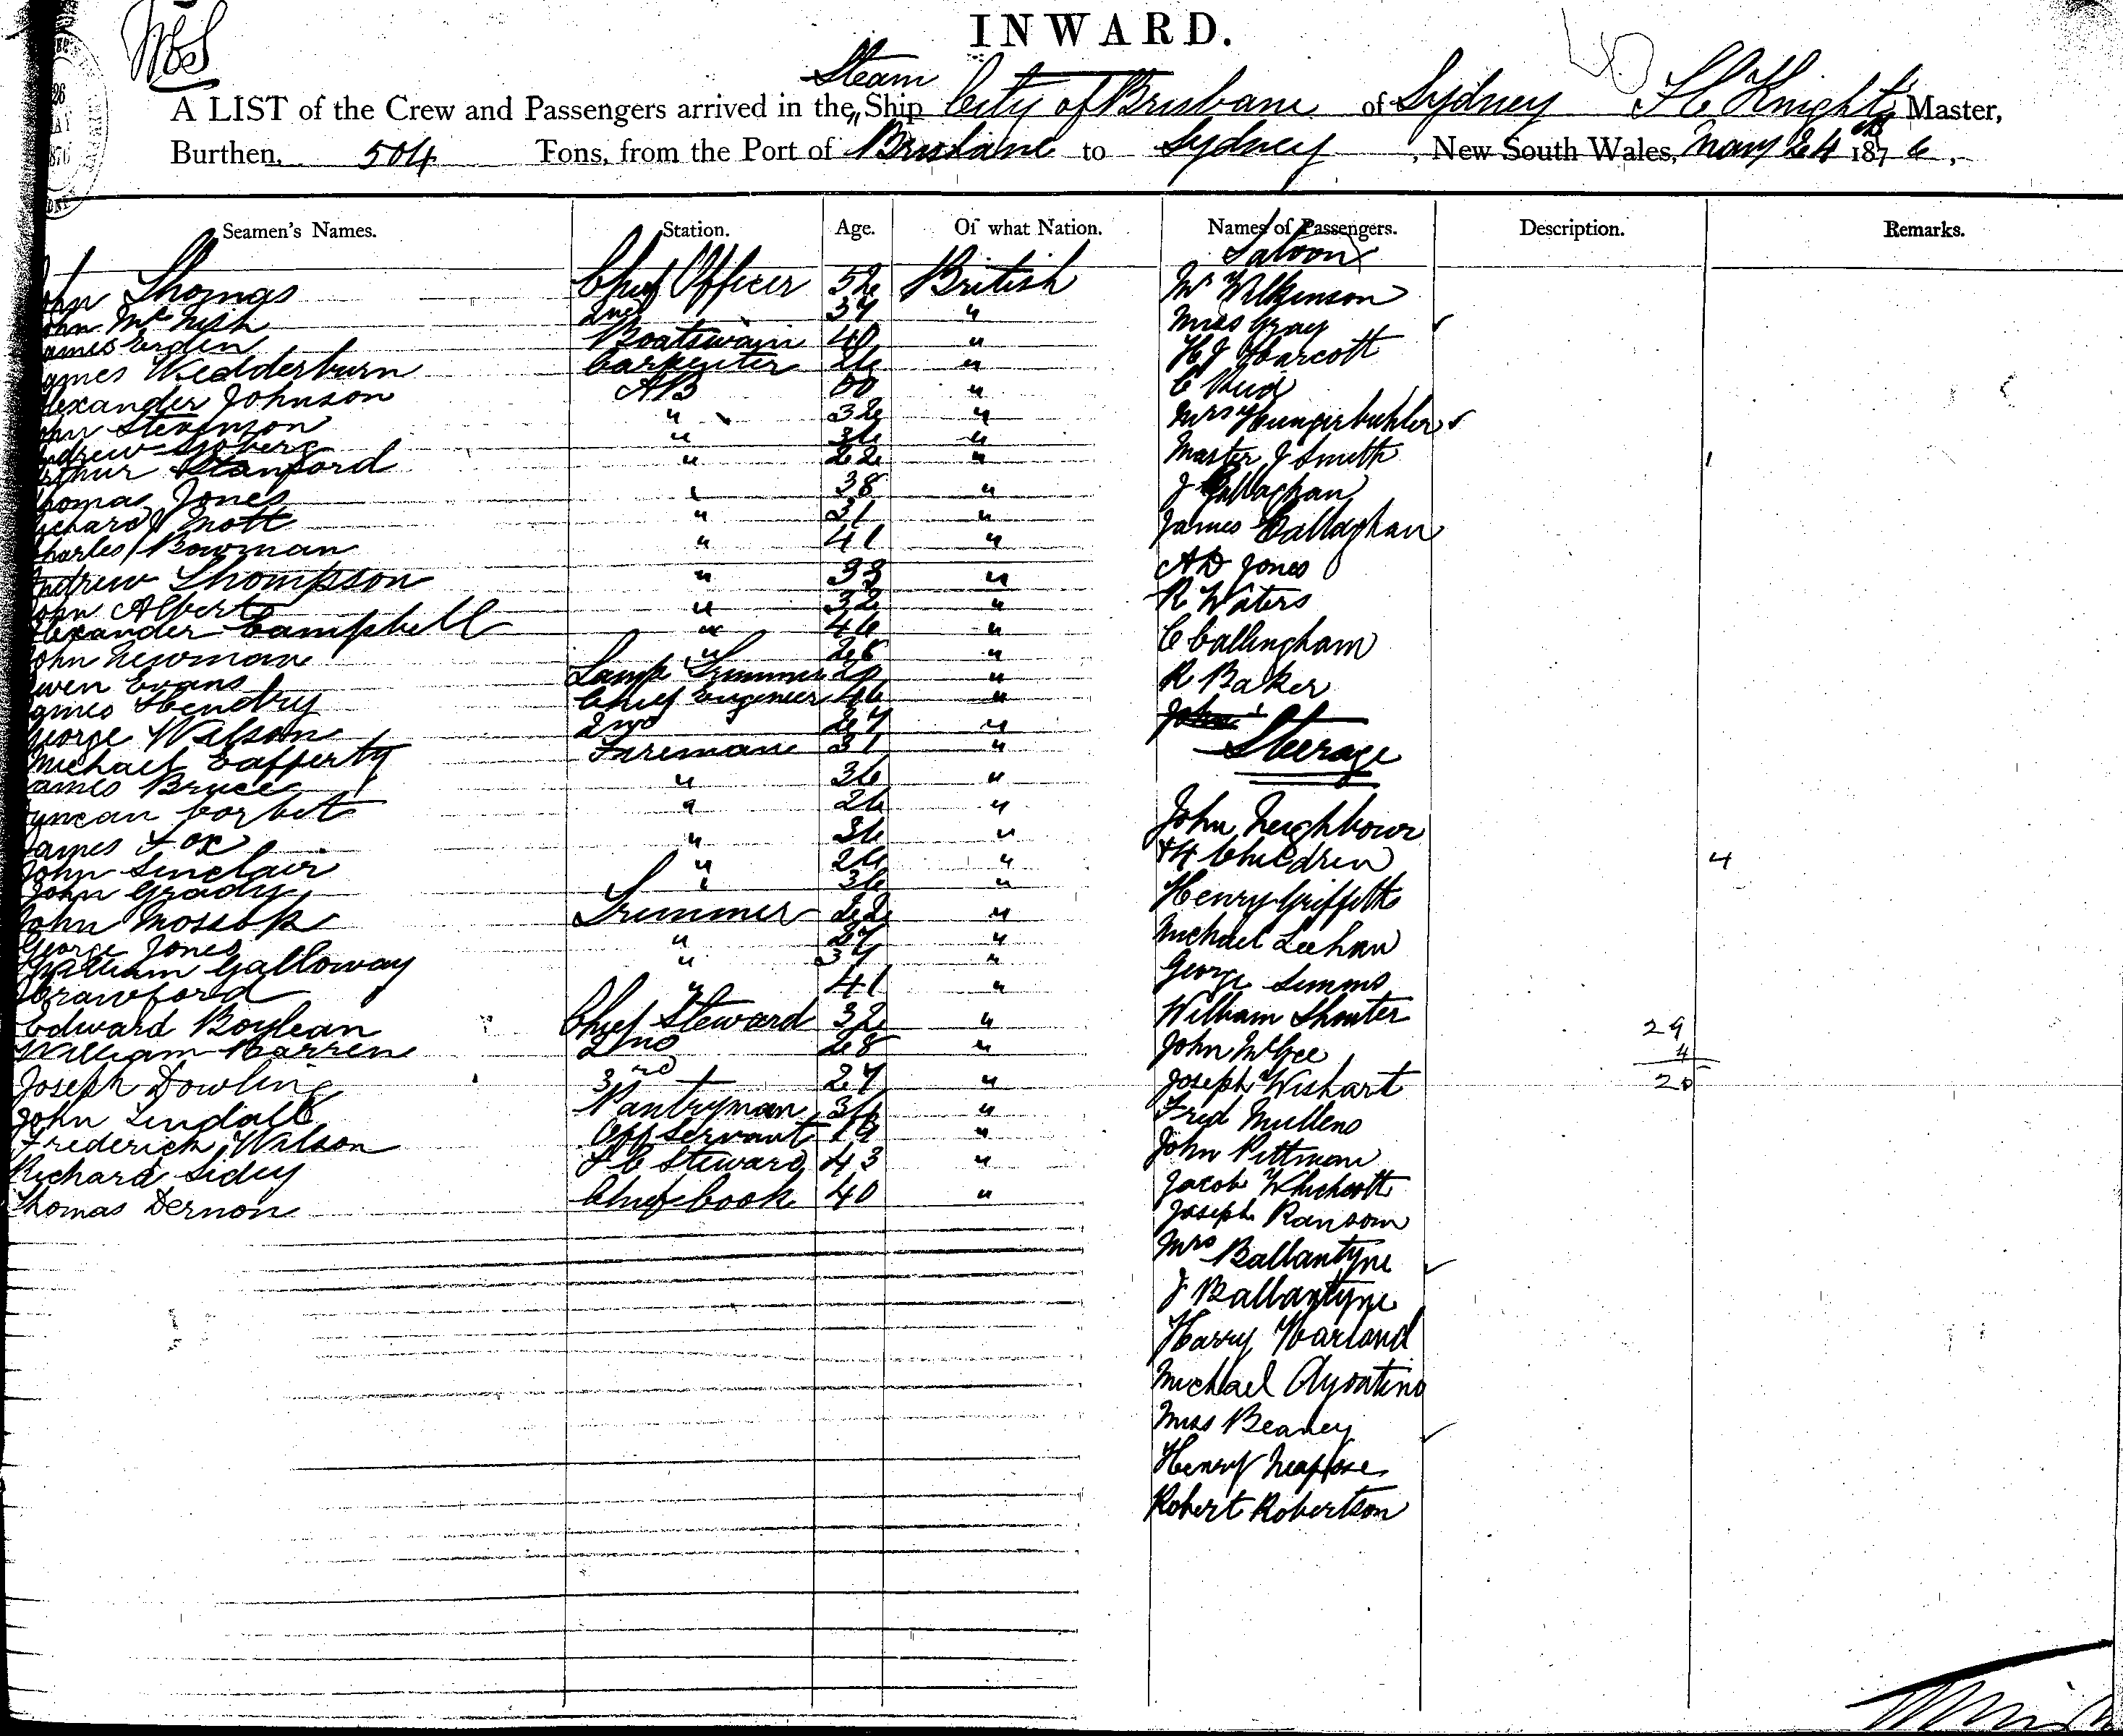 INWARD.
Steam
A LIST of the Crew and Passengers arrived in the Ship City of Brisbane of Sydney Knight Master,
Burthen, 504 Tons, from the Port of Brisbane to Sydney, New South Wales, May 24th 1876.
Seamen's Names. Station. Age. Of what Nation. Names of Passengers. Description. Remarks.
Saloon
John Thomas Chief Officer 52 British Mr Wilkinson
John McNish 2nd 37 " Miss Gray
James Boatswain 40 " H J Harcott
James Wedderburn Carpenter 26 " C
Alexander Johnson AB " Mrs Hungerbuhler
John Stevenson " 32 "
Andrew " 36 " Master J Smith 1
Arthur Stanford " 22 "
Thomas Jones " 38 " J Gallaghan
Richard Mott " 21 " James Callaghan
Charles Bowman " 41 "
Andrew Thompson " 33 " A D Jones
John Albert " 32 " R Waters
Alexander Campbell " 46 " C Callingham
John Newman " 28 "
Owen Evans Lamp Trimmer " R Baker
James Hendry Chief Engineer 46 "
George Watson 2nd 27 " John
Michael Cafferty Fireman 31 " Steerage
James Bruce " 36 "
Duncan Corbet " 26 " John Neighbour
James Fox " 36 " + 4 Children 4
John Sinclair " 26 "
John Grady " 36 " Henry Griffiths
John Trimmer 22 " Michael Leehan
George Jones " 27 "
William Galloway " 37 " George Simms
Crawford " 41 "
Edward Boylean Chief Steward 32 " William Shouter 29
William Warren 2nd 28 " John McGee 4
Joseph Dowling 3rd 27 " Joseph Wishart
John Tindall Pantryman " Fred Mullens
Frederick Watson Servant " John Pittman
Richard Sidey Steward 43 " Jacob
Thomas Dernon Chief Cook 40 " Joseph Ransom
Mrs Ballantyne
J Ballantyne
Harry Harland
Michael
Miss Beaney
Henry
Robert Robertson